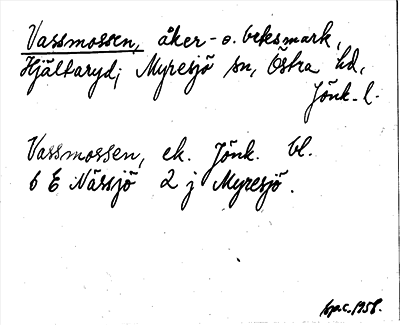 Vassmossen, åker- o. beksmark,
Hjältaryd; Myresjö sn, Östra hd,
Jönk. l.
Vassmossen, ek. Jönk. bl.
6 E Nässjö 2 j Myresjö.
1958.